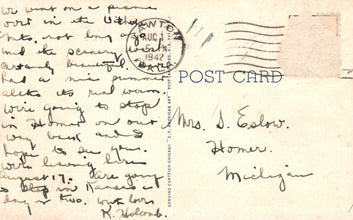 We went on a picnic
over in the Wichita
Mts. not long ago
and the scenery was
certainly beautiful.
Had a nice summer
altho its real warm.
We're going to stop
in Homer on our
way back and I
hope to see you.
We're leaving here
August 17. Are going
to stop in Kansas a
day or two. With love
K. Holcomb.
LAWTON
AUG 1
5 PM
1942
OKLA.
POST CARD
GENUINE CURTEICH-CHICAGO "C.T. AMERICAN ART" POST CARD
Mrs. D. Eslow.
Homer
Michigan